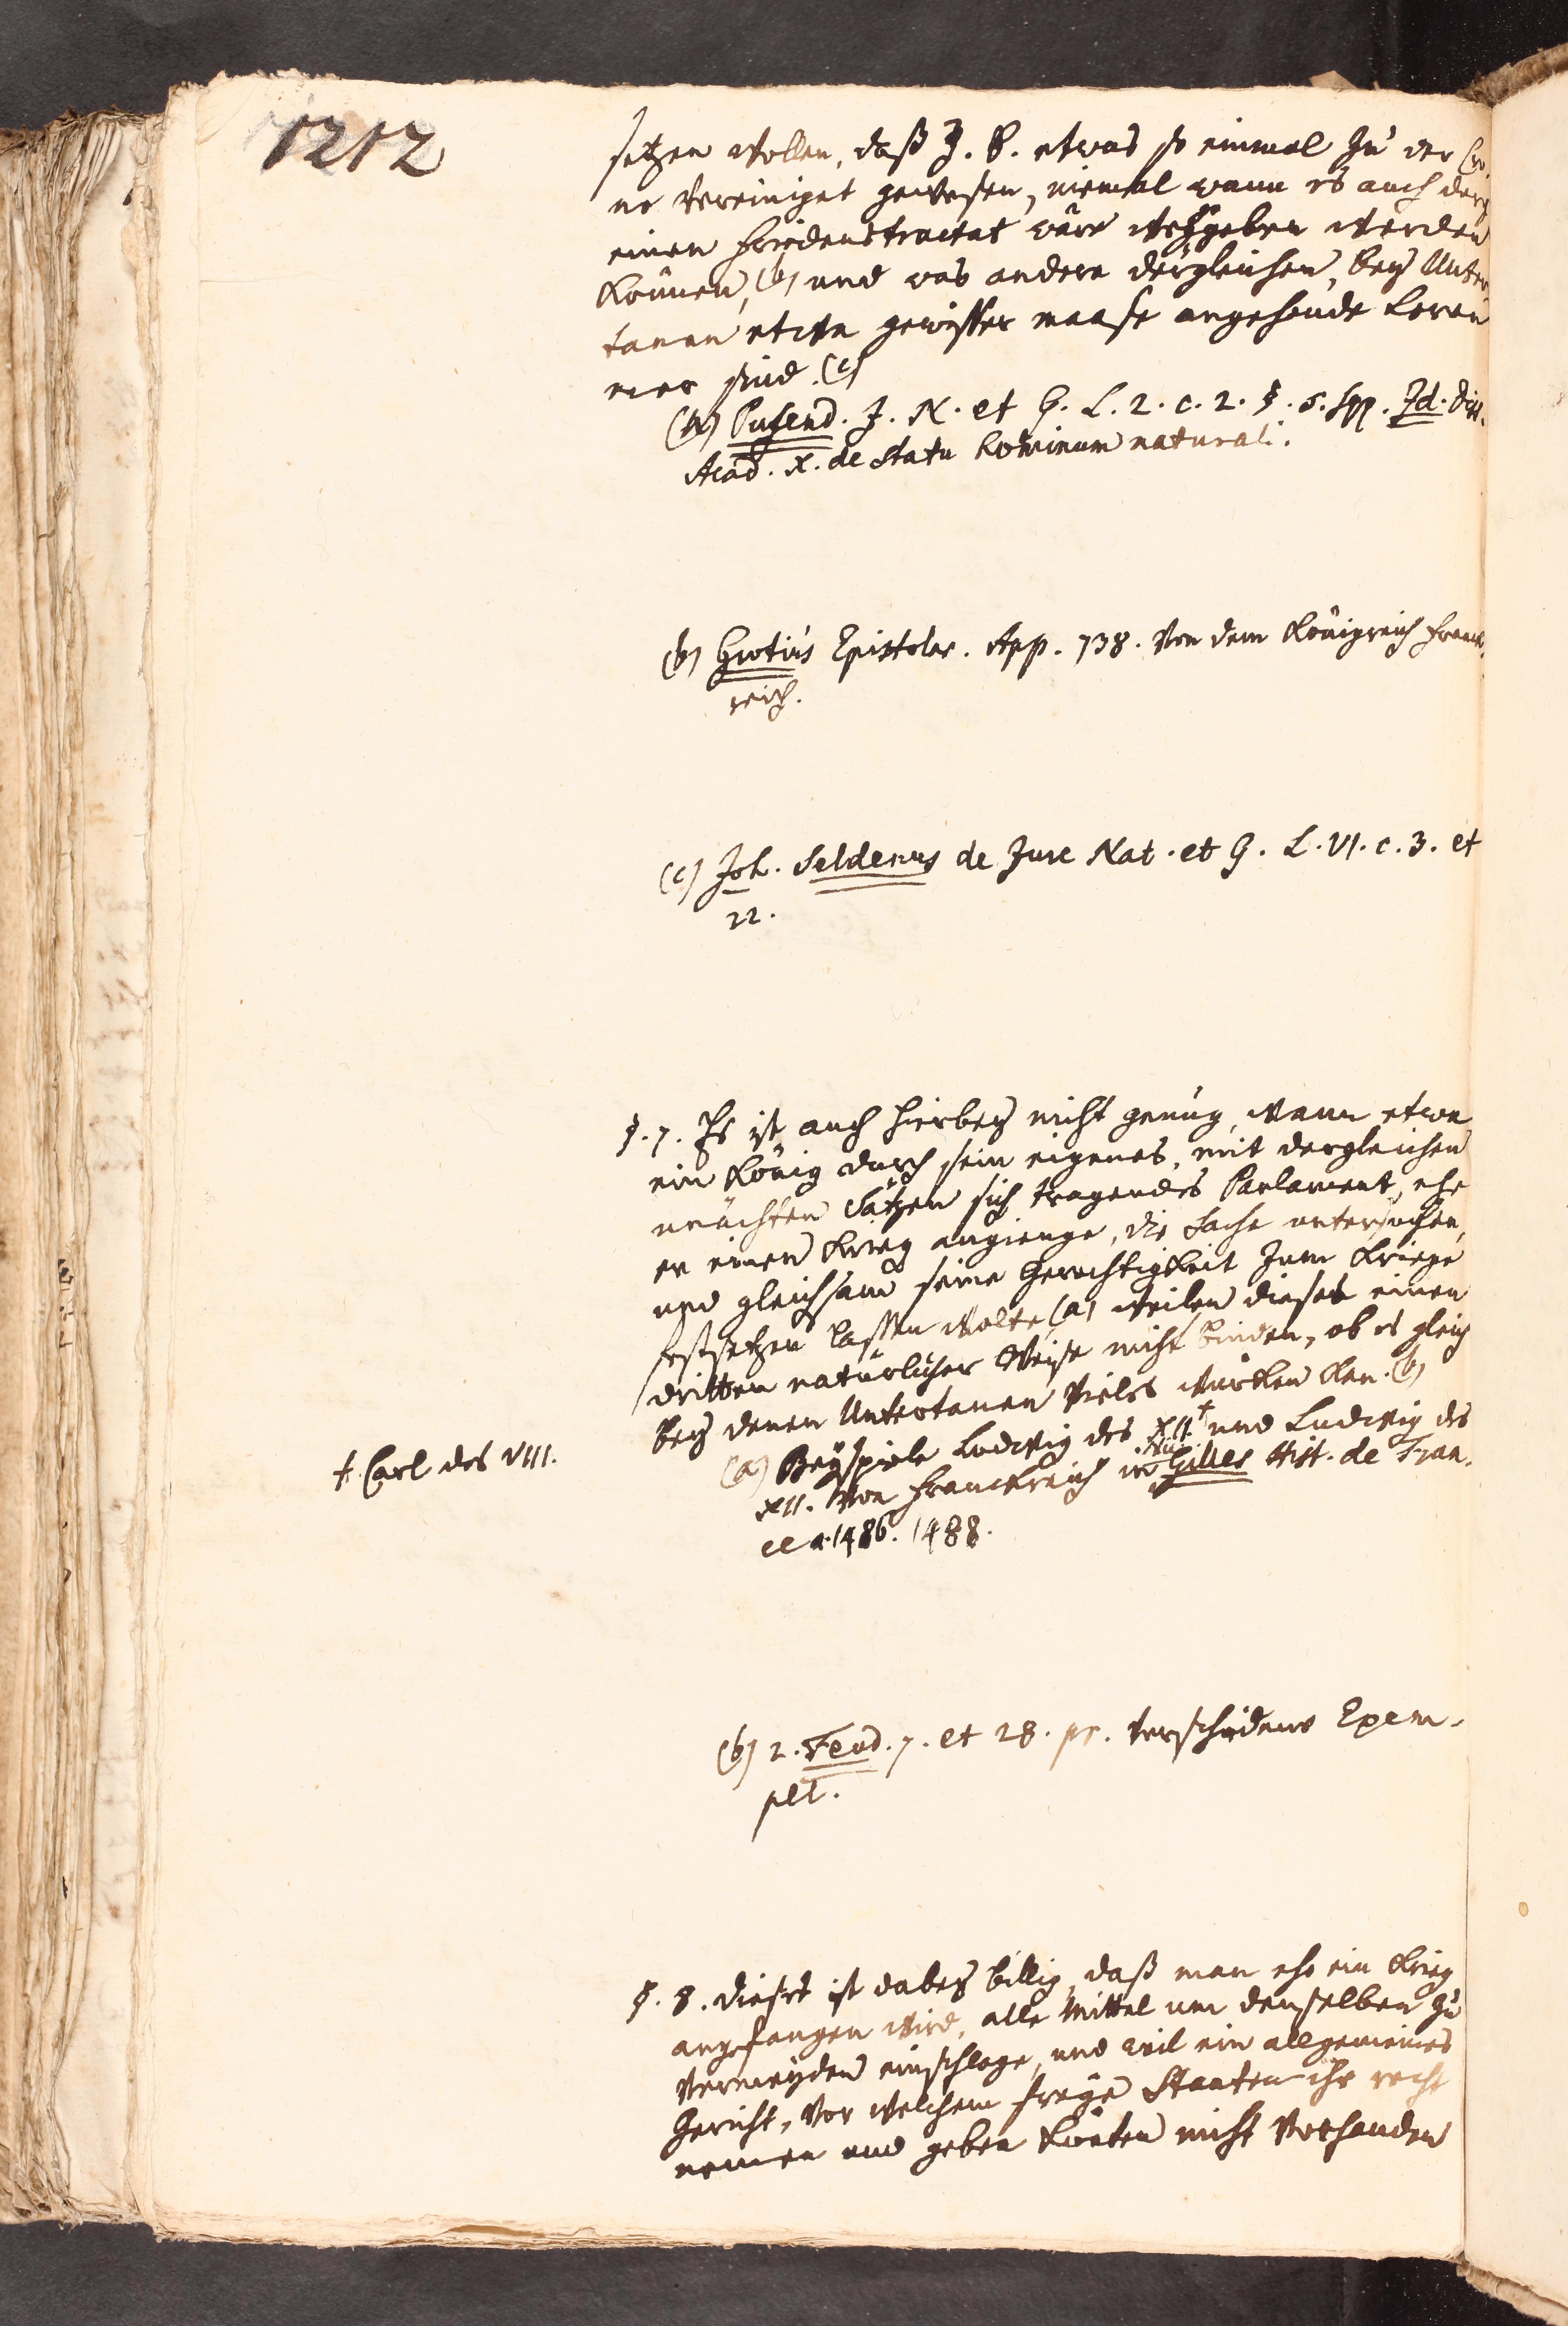 1212
setzen wollen, daß z. E. etwas so einmal zu der Cro,
ne vereiniget gewesen, niemal wann es auch durch
einen Friedenstractat wäre weggeben werden
können, (b) und was andere dergleichen, bey Unter,
tanen etwa gewisser maase angehende
sind. (c)
(a) Pufend. J. N. et G. L. 2. c. 2. §. 5. sqq. Id. Diss.
Acad. X. de statu hominum naturali.
(b) Grotius Epistolar. App. 738. von dem Königreich Franck,
reich.
(c) Joh. Seldenus de Jure Nat. et G. L. VI. c. 3. et
22.
§. 7. Es ist auch hierbey nicht genug, wann etwa
ein König durch sein eigenes, mit dergleichen
unächten Sätzen sich tragendes Parlament, ehe
er einen Krieg angienge, die Sache untersuchen,
und gleichsam seine Gerechtigkeit zum Kriege
festsetzen lassen wolte, (a) weilen dieses einen
dritten natürlicher Weise nicht binden, ob es gleich
bey denen Untertanen vieles würken kan. (b)
(a) Beyspiele Ludwig des XII.† und Ludwig des
† Carl des VIII.
XII. von Franckreich in Nic. Gilles Hist. de Fran,
ce a. 1486. 1488.
(b) 2. Feud. 7. et 28. pr. verschidene Exem,
pel.
§. 8. dieses ist dabey billig, daß man ehe ein Krieg
angefangen wird, alle Mittel um denselben zu
vermeyden einschlage, und weil ein allgemeines
Gericht, vor welchem freye Staaten ihr recht
nemen und geben könten nicht vorhanden